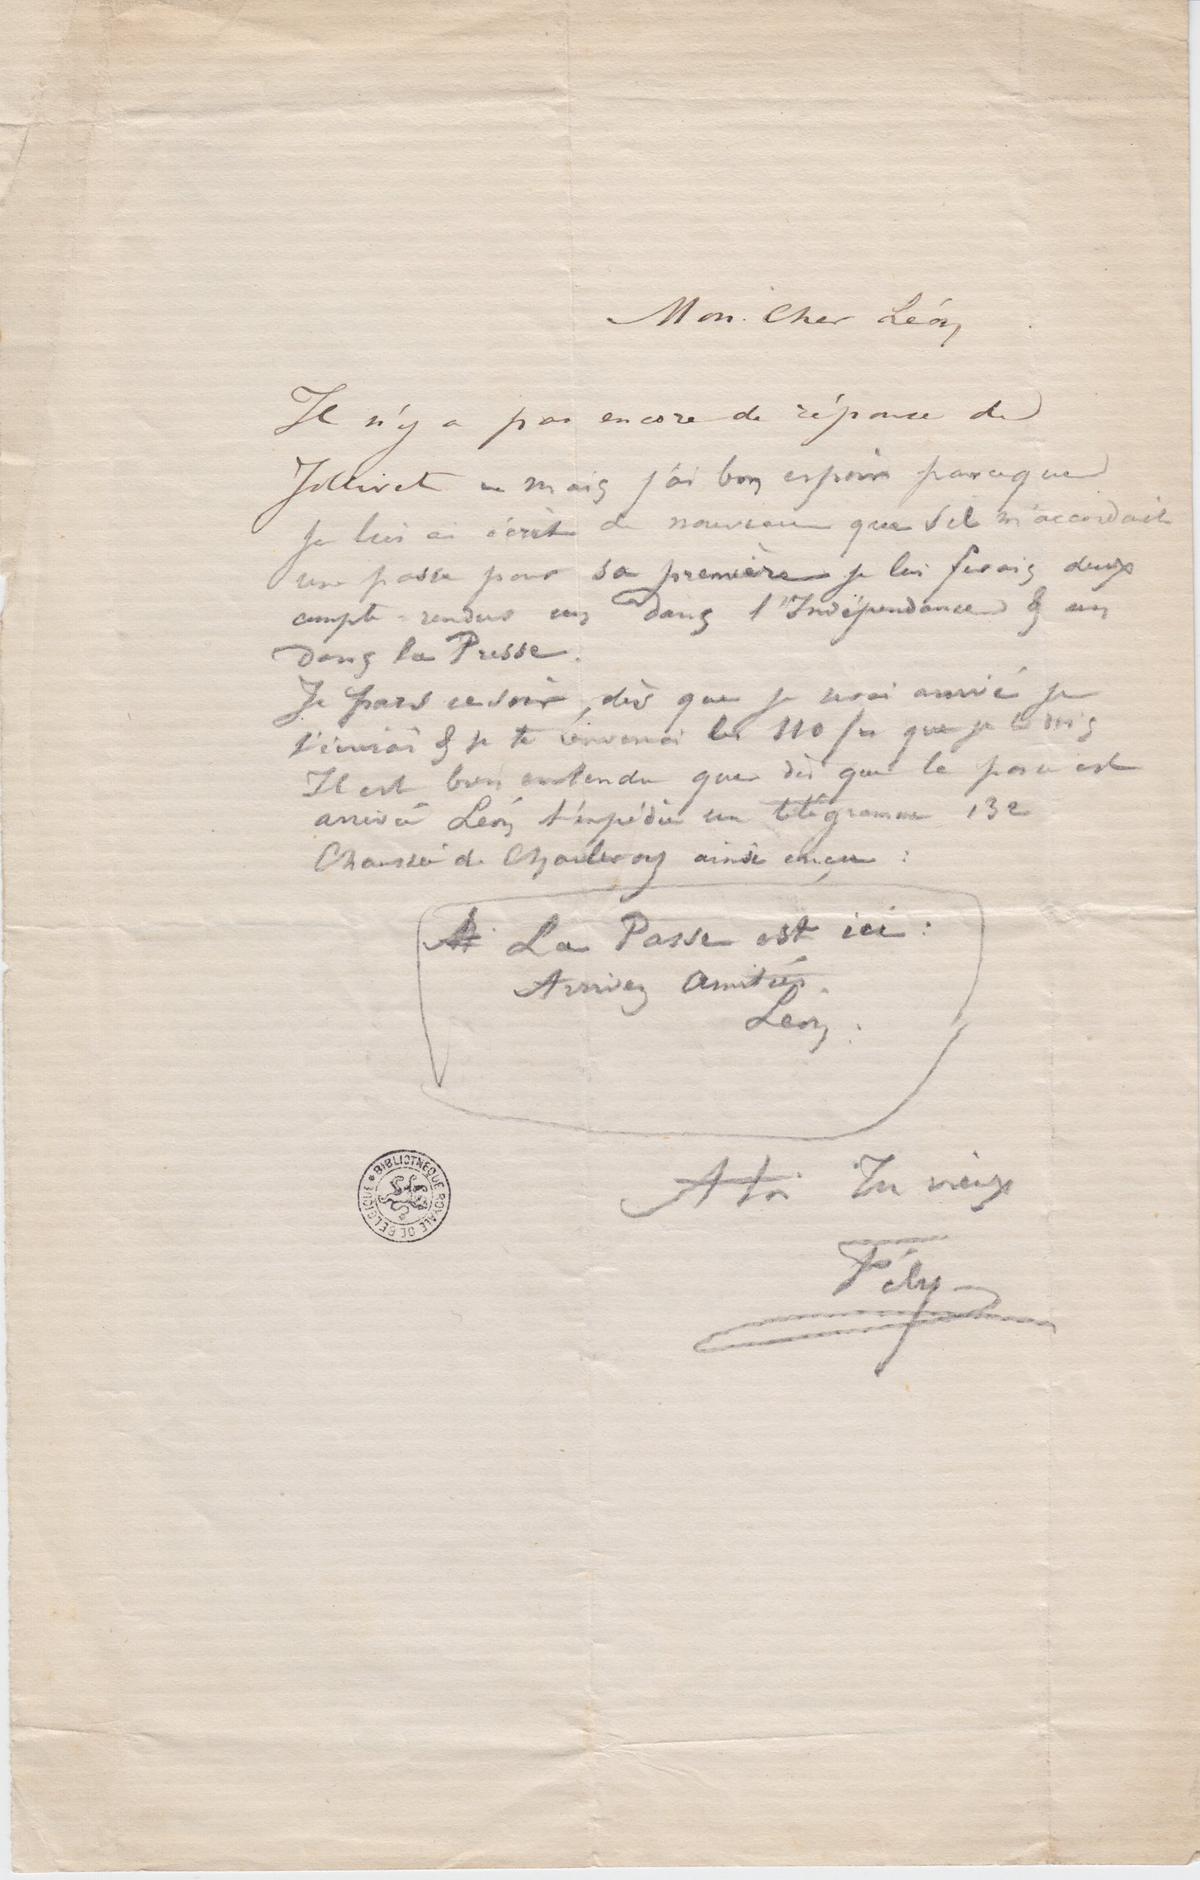 Mon Cher Léon
Il n'y a pas encore de réponse de
Jollivet mais j'ai bon espoir parceque
je lui ai écrit de nouveau que s'il m'accordait
une passe pour sa première je lui ferais deux
compte-rendus un dans l'Indépendance & un
dans la Presse.
Je pars ce soir, dès que je serai arrivé je
t'écrirai & je te renverrai les 110 frs que je te dois
Il est bien entendu que dès que la passe est
arrivée Léon t'expédie un télégramme 132
Chaussée de Charleroy ainsi conçu :
La Passe est ici :
Arrivez Amitiés.
Léon.
A toi Tu vieux
Fély
BIBLIOTHEQUE ROYALE DE BELGIQUE